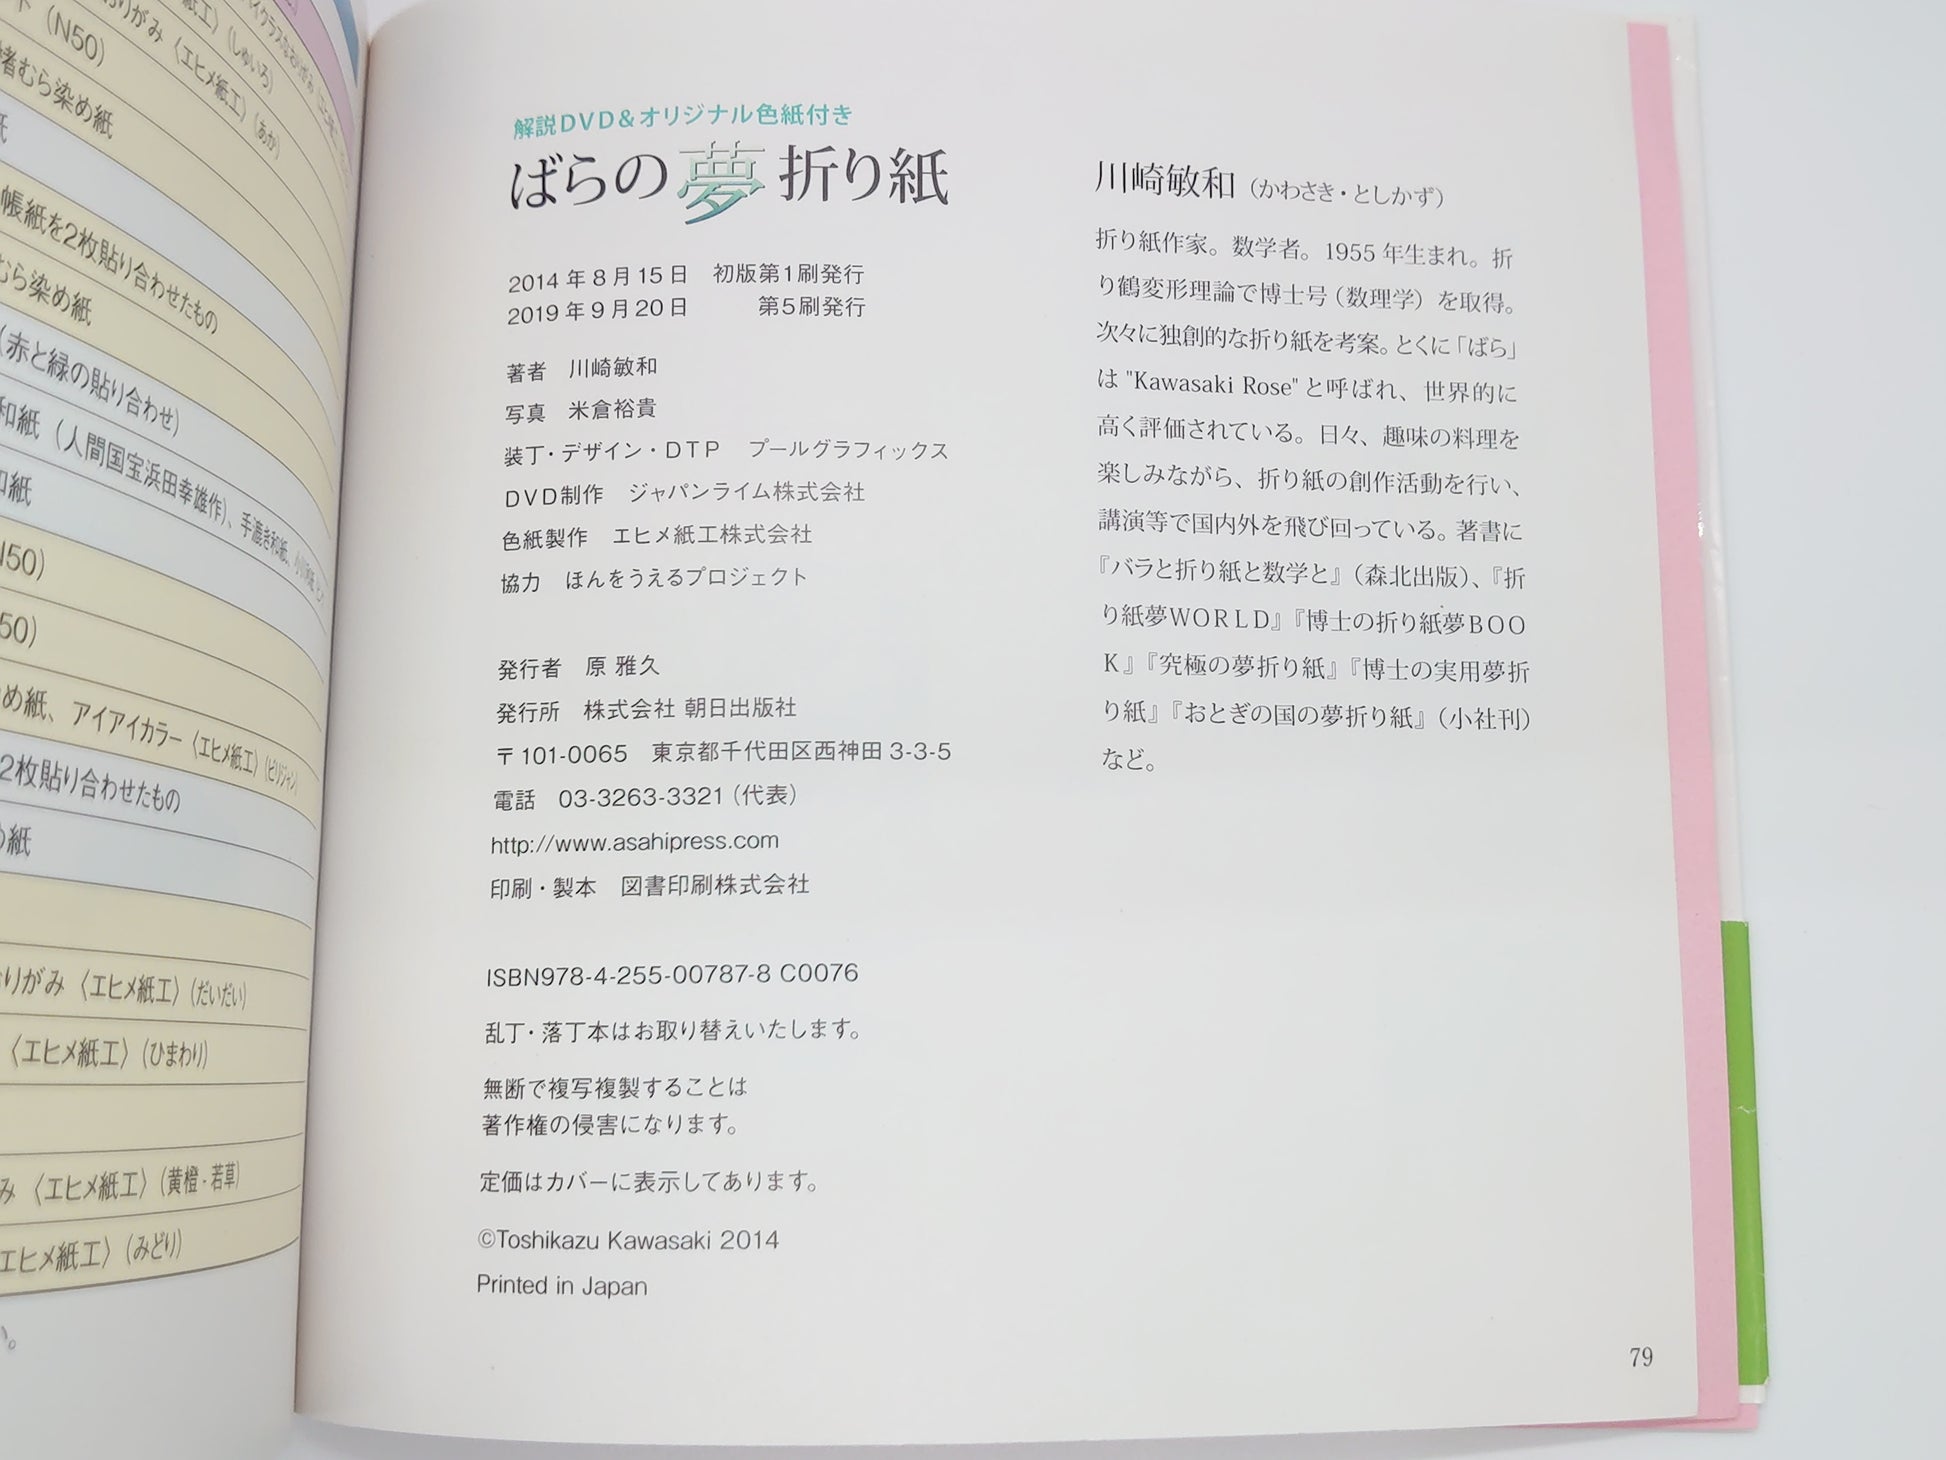 ト（N50）
〈エヒメ紙工〉（あか）
者むら染め紙
紙
帳紙を2枚貼り合わせたもの
むら染め紙
（赤と緑の貼り合わせ）
和紙（人間国宝浜田幸雄作）、手漉き和紙、
和紙
N50）
50）
め紙、アイアイカラー〈エヒメ紙工〉（ビリジャン）
2枚貼り合わせたもの
め紙
りがみ〈エヒメ紙工〉（だいだい）
〈エヒメ紙工〉（ひまわり）
み〈エヒメ紙工〉（黄橙-若草）
エヒメ紙工〉（みどり）
い。
解説DVD&オリジナル色紙付き
ばらの夢折り紙
2014年8月15日　初版第1刷発行
2019年9月20日　第5刷発行
著者　川崎敏和
写真　米倉裕貴
装丁・デザイン・DTP　プールグラフィックス
DVD制作　ジャパンライム株式会社
色紙製作　エヒメ紙工株式会社
協力　ほんをうえるプロジェクト
発行者　原 雅久
発行所　株式会社 朝日出版社
〒101-0065　東京都千代田区西神田3-3-5
電話　03-3263-3321（代表）
http://www.asahipress.com
印刷・製本　図書印刷株式会社
ISBN978-4-255-00787-8 C0076
乱丁・落丁本はお取り替えいたします。
無断で複写複製することは
著作権の侵害になります。
定価はカバーに表示してあります。
©Toshikazu Kawasaki 2014
Printed in Japan
川崎敏和（かわさき・としかず）
折り紙作家。数学者。1955年生まれ。折
り鶴変形理論で博士号（数理学）を取得。
次々に独創的な折り紙を考案。とくに「ばら」
は"Kawasaki Rose"と呼ばれ、世界的に
高く評価されている。日々、趣味の料理を
楽しみながら、折り紙の創作活動を行い、
講演等で国内外を飛び回っている。著書に
『バラと折り紙と数学と』（森北出版）、『折
り紙夢WORLD』『博士の折り紙夢BOO
K』『究極の夢折り紙』『博士の実用夢折
り紙』『おとぎの国の夢折り紙』（小社刊）
など。
79